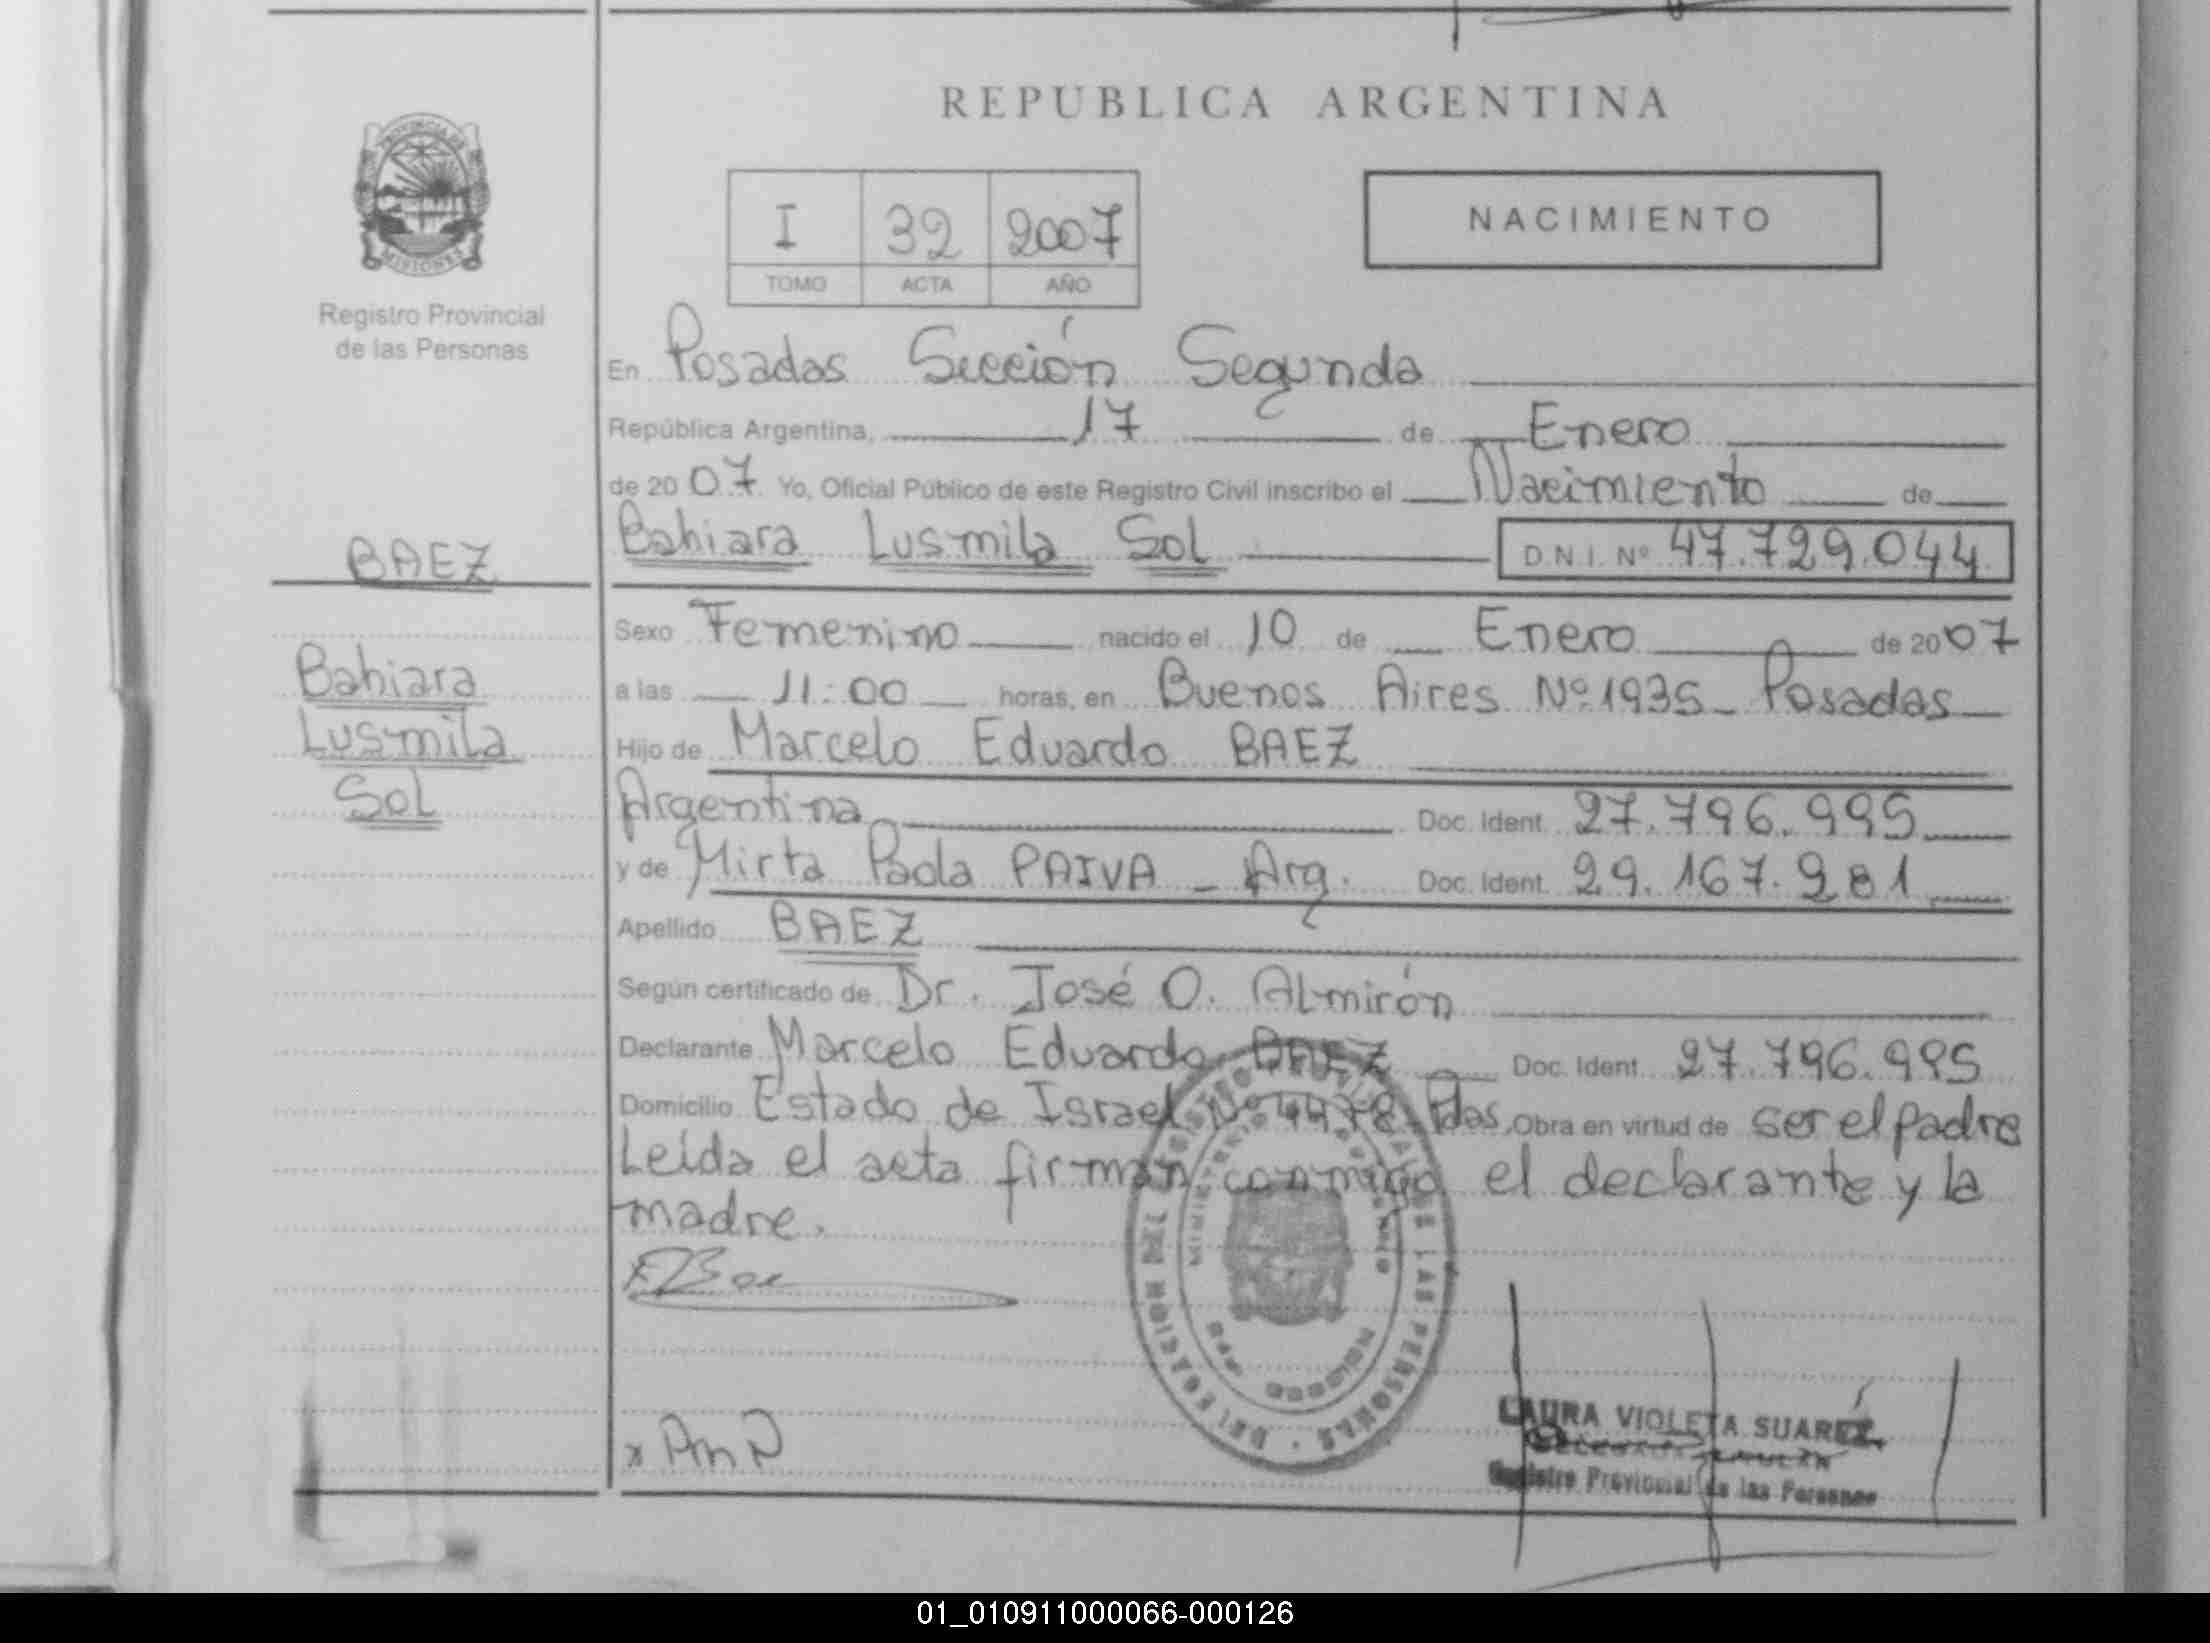 REPUBLICA ARGENTINA
PROVINCIA DE
MISIONES
Registro Provincial
de las Personas
I 32 2007
TOMO ACTA AÑO
NACIMIENTO
En Posadas Sección Segunda
República Argentina, 17 de Enero
de 2007 Yo, Oficial Público de este Registro Civil inscribo el Nacimiento de
Bahiara Lusmila Sol D.N.I. Nº 47.729.044
BAEZ
Bahiara
Lusmila
Sol
Sexo Femenino nacido el 10 de Enero de 2007
a las 11:00 horas, en Buenos Aires Nº 1935 - Posadas
Hijo de Marcelo Eduardo BAEZ
Argentina Doc. Ident. 27.796.995
y de Mirta Paola PAIVA - Arg. Doc. Ident. 29.167.981
Apellido BAEZ
Según certificado de Dr. José O. Almirón
Declarante Marcelo Eduardo BAEZ Doc. Ident. 27.796.995
Domicilio Estado de Israel Nº 4478 Pdas. Obra en virtud de ser el padre
Leída el acta firman conmigo el declarante y la
madre.
LAURA VIOLETA SUAREZ
Registro Provincial de las Personas
01_010911000066-000126